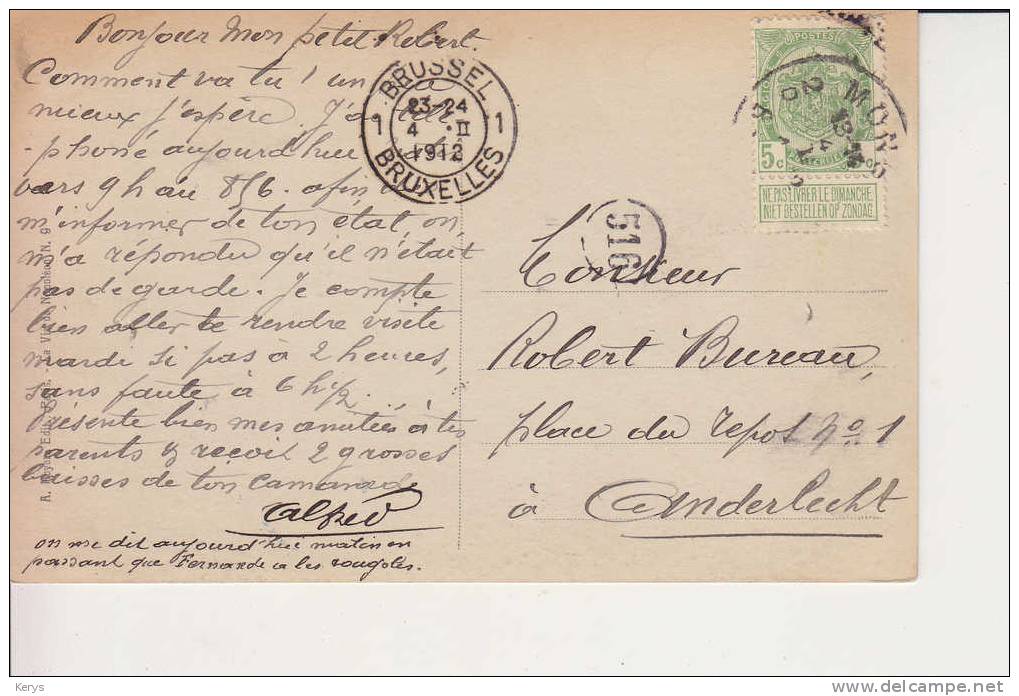 Bonjour Mon petit Robert.
Comment va tu ! un
mieux j'espère. J'ai télé
-phoné aujourd'hui
vers 9 h au 856. afin
m'informer de ton état, on
m'a répondu qu'il n'était
pas de garde. Je compte
bien aller te rendre visite
mardi si pas à 2 heures,
sans faute à 6 h ½
Présente bien mes amitiées à tes
parents & reçoit 2 grosses
baisses de ton Camarade
Alfred
on me dit aujourd'hui matin en
passant que Fernande a les rougoles.
BRUSSEL
1 1
23-24
4 II
1912
BRUXELLES
POSTES
5 c
NE PAS LIVRER LE DIMANCHE
NIET BESTELLEN OP ZONDAG
MONS
516
Monsieur
Robert Bureau,
place du Repos No 1
à Anderlecht
Kerys
delcampe.net